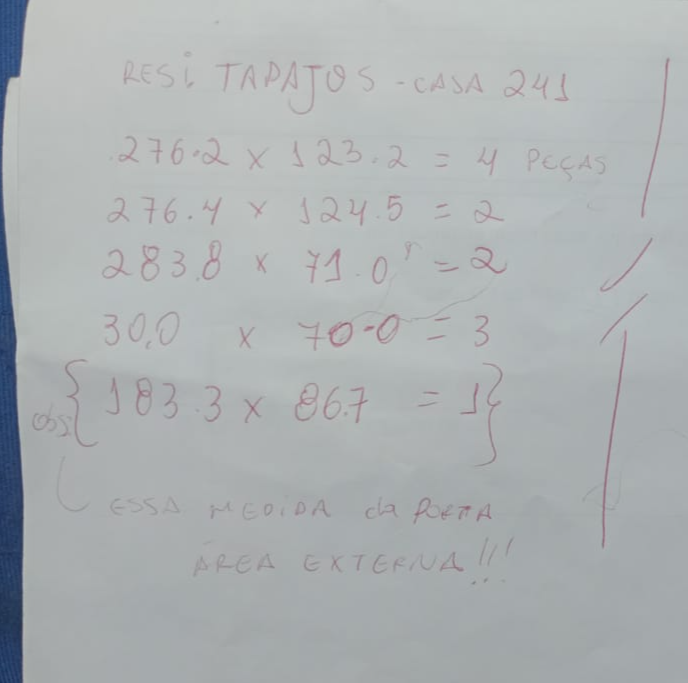 RESi TAPAJOS - CASA 241
276.2 x 123.2 = 4 PEÇAS
276.4 x 124.5 = 2
283.8 x 71.0 = 2
30,0 x 70.0 = 3
obs: { 183.3 x 86.7 = 1 }
ESSA MEDIDA da PORTA
ÁREA EXTERNA!!!